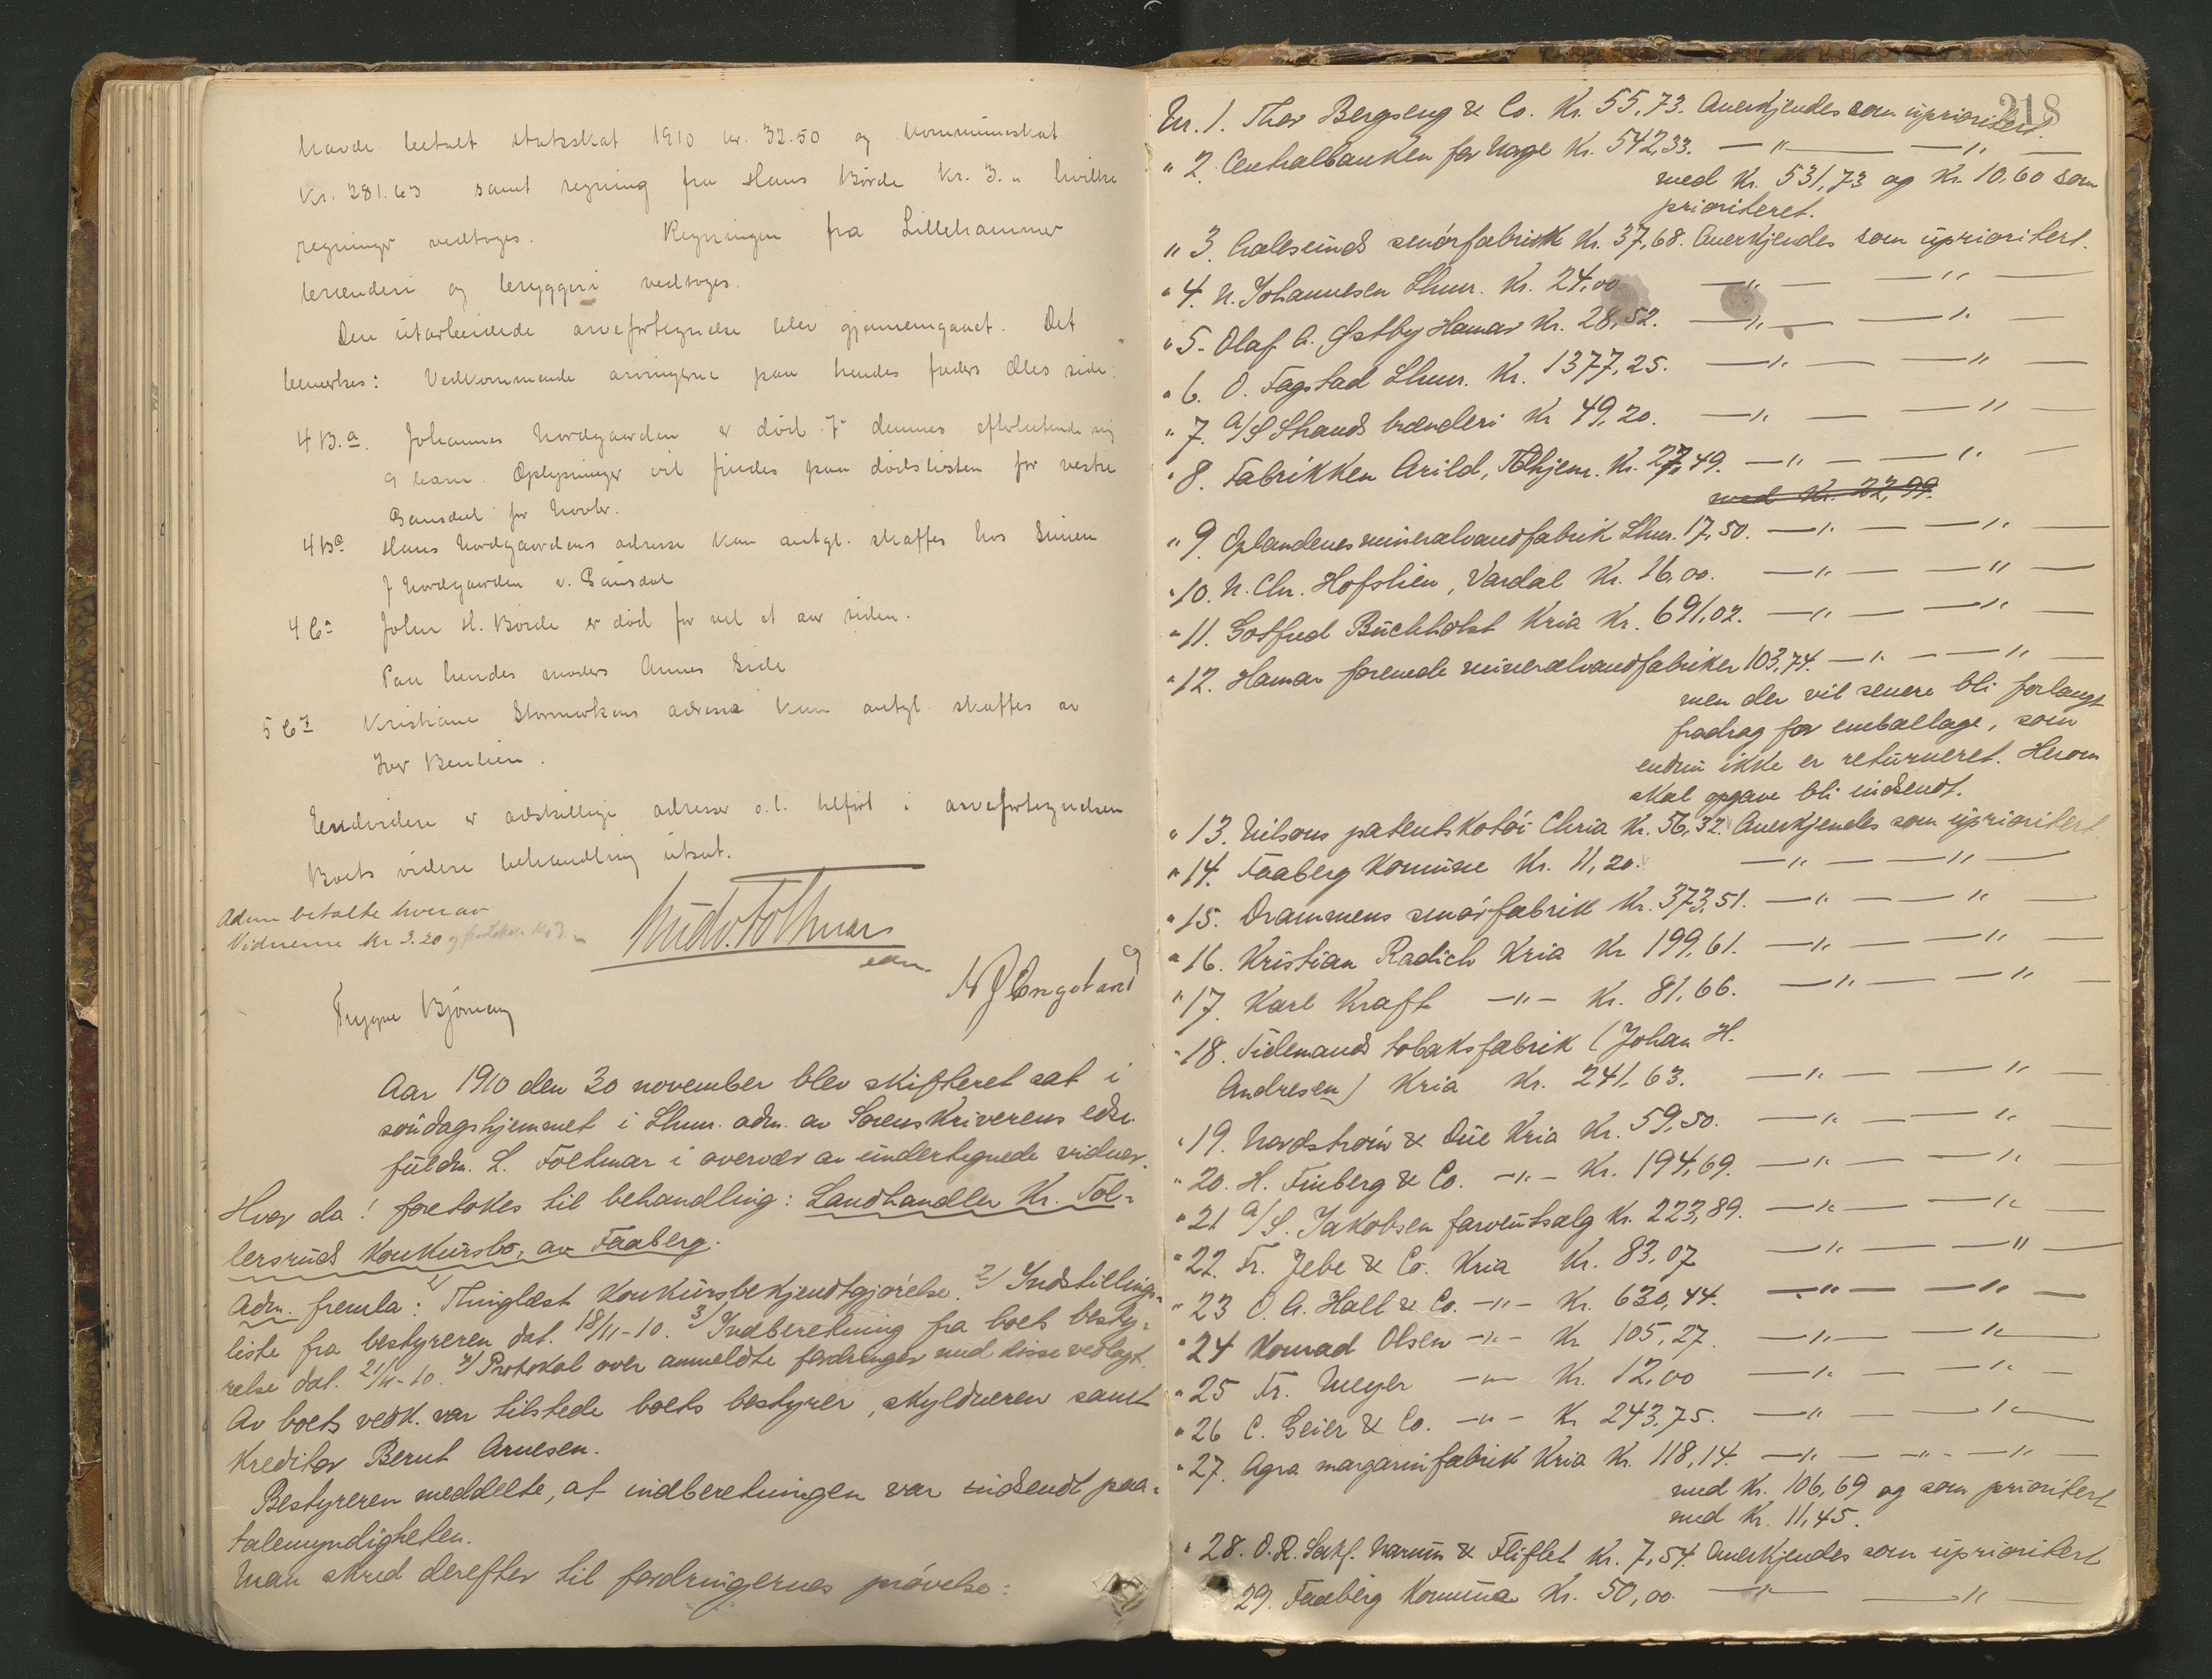 havde betalt statsskat 1910 kr. 32.50 og kommuneskat
Kr. 281.63 samt regning fra Hans Børde Kr. 3.- hvilke
regninger vedtoges. Regningen fra Lillehammer
brænderi og bryggeri vedtoges.
Den utarbeidede arvefortegnelse blev gjennemgaaet. Det
bemerkes: Vedkommende arvingerne paa hendes faders side:
4 B.a. Johannes Nordgaarden er død. Dennes efterlatende sig
9 barn. Oplysninger vil findes paa dødslisten for vestre
Gausdal for Novbr.
4 B Hans Nordgaardens adresse kan antgl. skaffes hos Simen
J Nordgaarden v. Gausdal
4 C Johan H. Børde er død for ved et aar siden.
Paa hendes moders Annes side
5 C Kristiane adresse kan antgl. skaffes av
Iver
Endvidere er adskillige adresser o.l. tilført i arvefortegnelsen
Boets videre behandling utsat.
Adm betalte hver av
Vidnerne kr 3.20
Ludv. Foltmar
edsv.
N J Engeland
Trygve
Aar 1910 den 30 november blev skifteret sat i
søndagshjemmet i Lhmr. adm. av Sorenskriverens edsv.
fuldm. L. Foltmar i overvær av undertegnede vidner.
Hvor da! foretokes til behandling: Landhandler Kr. Tol-
lersruds Konkursbo, av Faaberg.
Adm. fremla: 1) Thinglæst Konkursbekjendtgjørelse. 2) Indstillings-
liste fra bestyreren dat. 18/11-10. 3) Indberetning fra boets besty-
relse dat. 21/11-10. 4) Protokol over anmeldte fordringer med disse vedlagt.
Av boets vedk. var tilstede boets bestyrer, skyldneren samt
kreditor Bernt Arnesen.
Bestyreren meddelte, at indberetningen var indsendt paa-
talemyndigheten.
Man skred derefter til fordringernes prøvelse:
218
Nr. 1. Thor Bergseng & Co. Kr. 55,73. Anerkjendes som uprioritert.
" 2. Centralbanken for Norge Kr. 542,33. —"— —"—
med Kr. 531,73 og Kr. 10,60 som
prioriteret.
" 3. Aalesunds smørfabrikk Kr. 37,68. Anerkjendes som uprioritert.
" 4. N. Johannesen Lhmr. Kr. 24,00 —"— —"—
" 5. Olaf A. Østby Hamar Kr. 28,52. —"— —"—
" 6. O. Fagstad Lhmr. Kr. 1377,25. —"— —"—
" 7. A/S Strands brænderi Kr 49,20. —"— —"—
" 8. Fabrikken Arild, Tdhjem. Kr. 27,49. —"— —"—
med Kr. 22,99.
" 9. Oplandenes mineralvandfabrik Lhmr. 17,50. —"— —"—
" 10. N. Chr. Hofslien, Vardal Kr. 16,00. —"— —"—
" 11. Gotfred Buchholst Kria Kr. 691,02. —"— —"—
" 12. Hamar forenede mineralvandfabriker 103,74. —"— —"—
men der vil senere bli forlangt
fradrag for emballage, som
endnu ikke er returneret. Herom
skal opgave bli indsendt.
" 13. Nilsons patentskotøi Chria Kr. 56,32. Anerkjendes som uprioritert.
" 14. Faaberg Komune Kr. 11,20. —"— —"—
" 15. Drammens smørfabrik Kr. 373,51. —"— —"—
" 16. Kristian Radich Kria Kr 199,61. —"— —"—
" 17. Karl Kraft —"— Kr. 81,66. —"— —"—
" 18. Tidemands tobaksfabrik (Johan H.
Andresen) Kria Kr. 241,63. —"— —"—
" 19. Nordstrøm & Due Kria Kr. 59,50. —"— —"—
" 20. H. Finberg & Co. —"— Kr. 194,69. —"— —"—
" 21 A/S. Jakobsen farveutsalg Kr. 223,89. —"— —"—
" 22. Fr. Jebe & Co. Kria Kr. 83,07 —"— —"—
" 23 O. A. Hall & Co. —"— Kr. 630,44. —"— —"—
" 24 Konrad Olsen —"— Kr 105,27. —"— —"—
" 25 Fr. Meyer —"— Kr. 12,00 —"— —"—
" 26 C. Geier & Co. —"— Kr 243,75. —"— —"—
" 27. Agra margarinfabrik Kria Kr. 118,14. —"— —"— —"—
med Kr. 106,69 og som prioritert
med Kr. 11,45.
" 28. O. R. Sakf. Narum & Fliflet Kr. 7,54. Anerkjendes som uprioritert
" 29. Faaberg Komune Kr. 50,00. —"— —"—